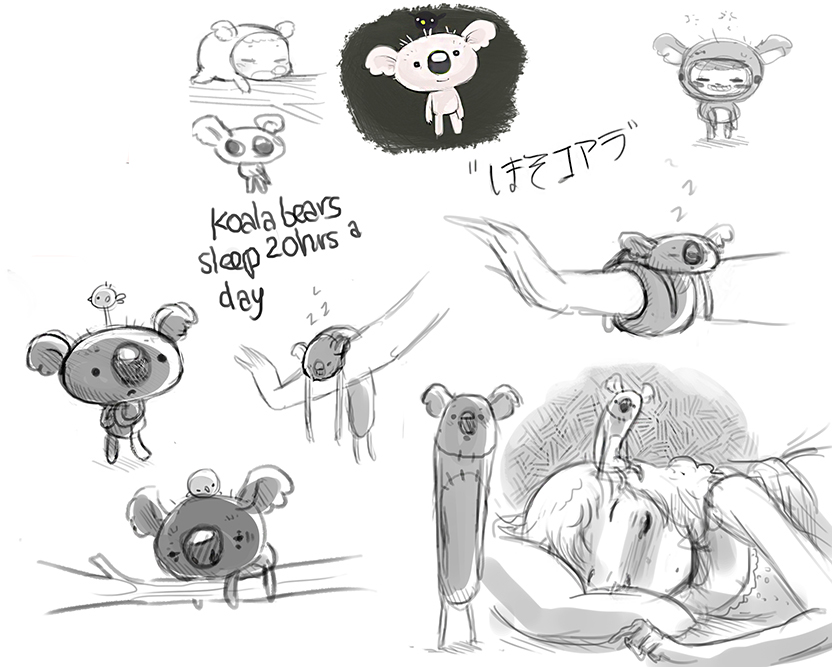 "ほそコアラ"
koala bears
sleep 20hrs a
day
z
z
z
z
z
z